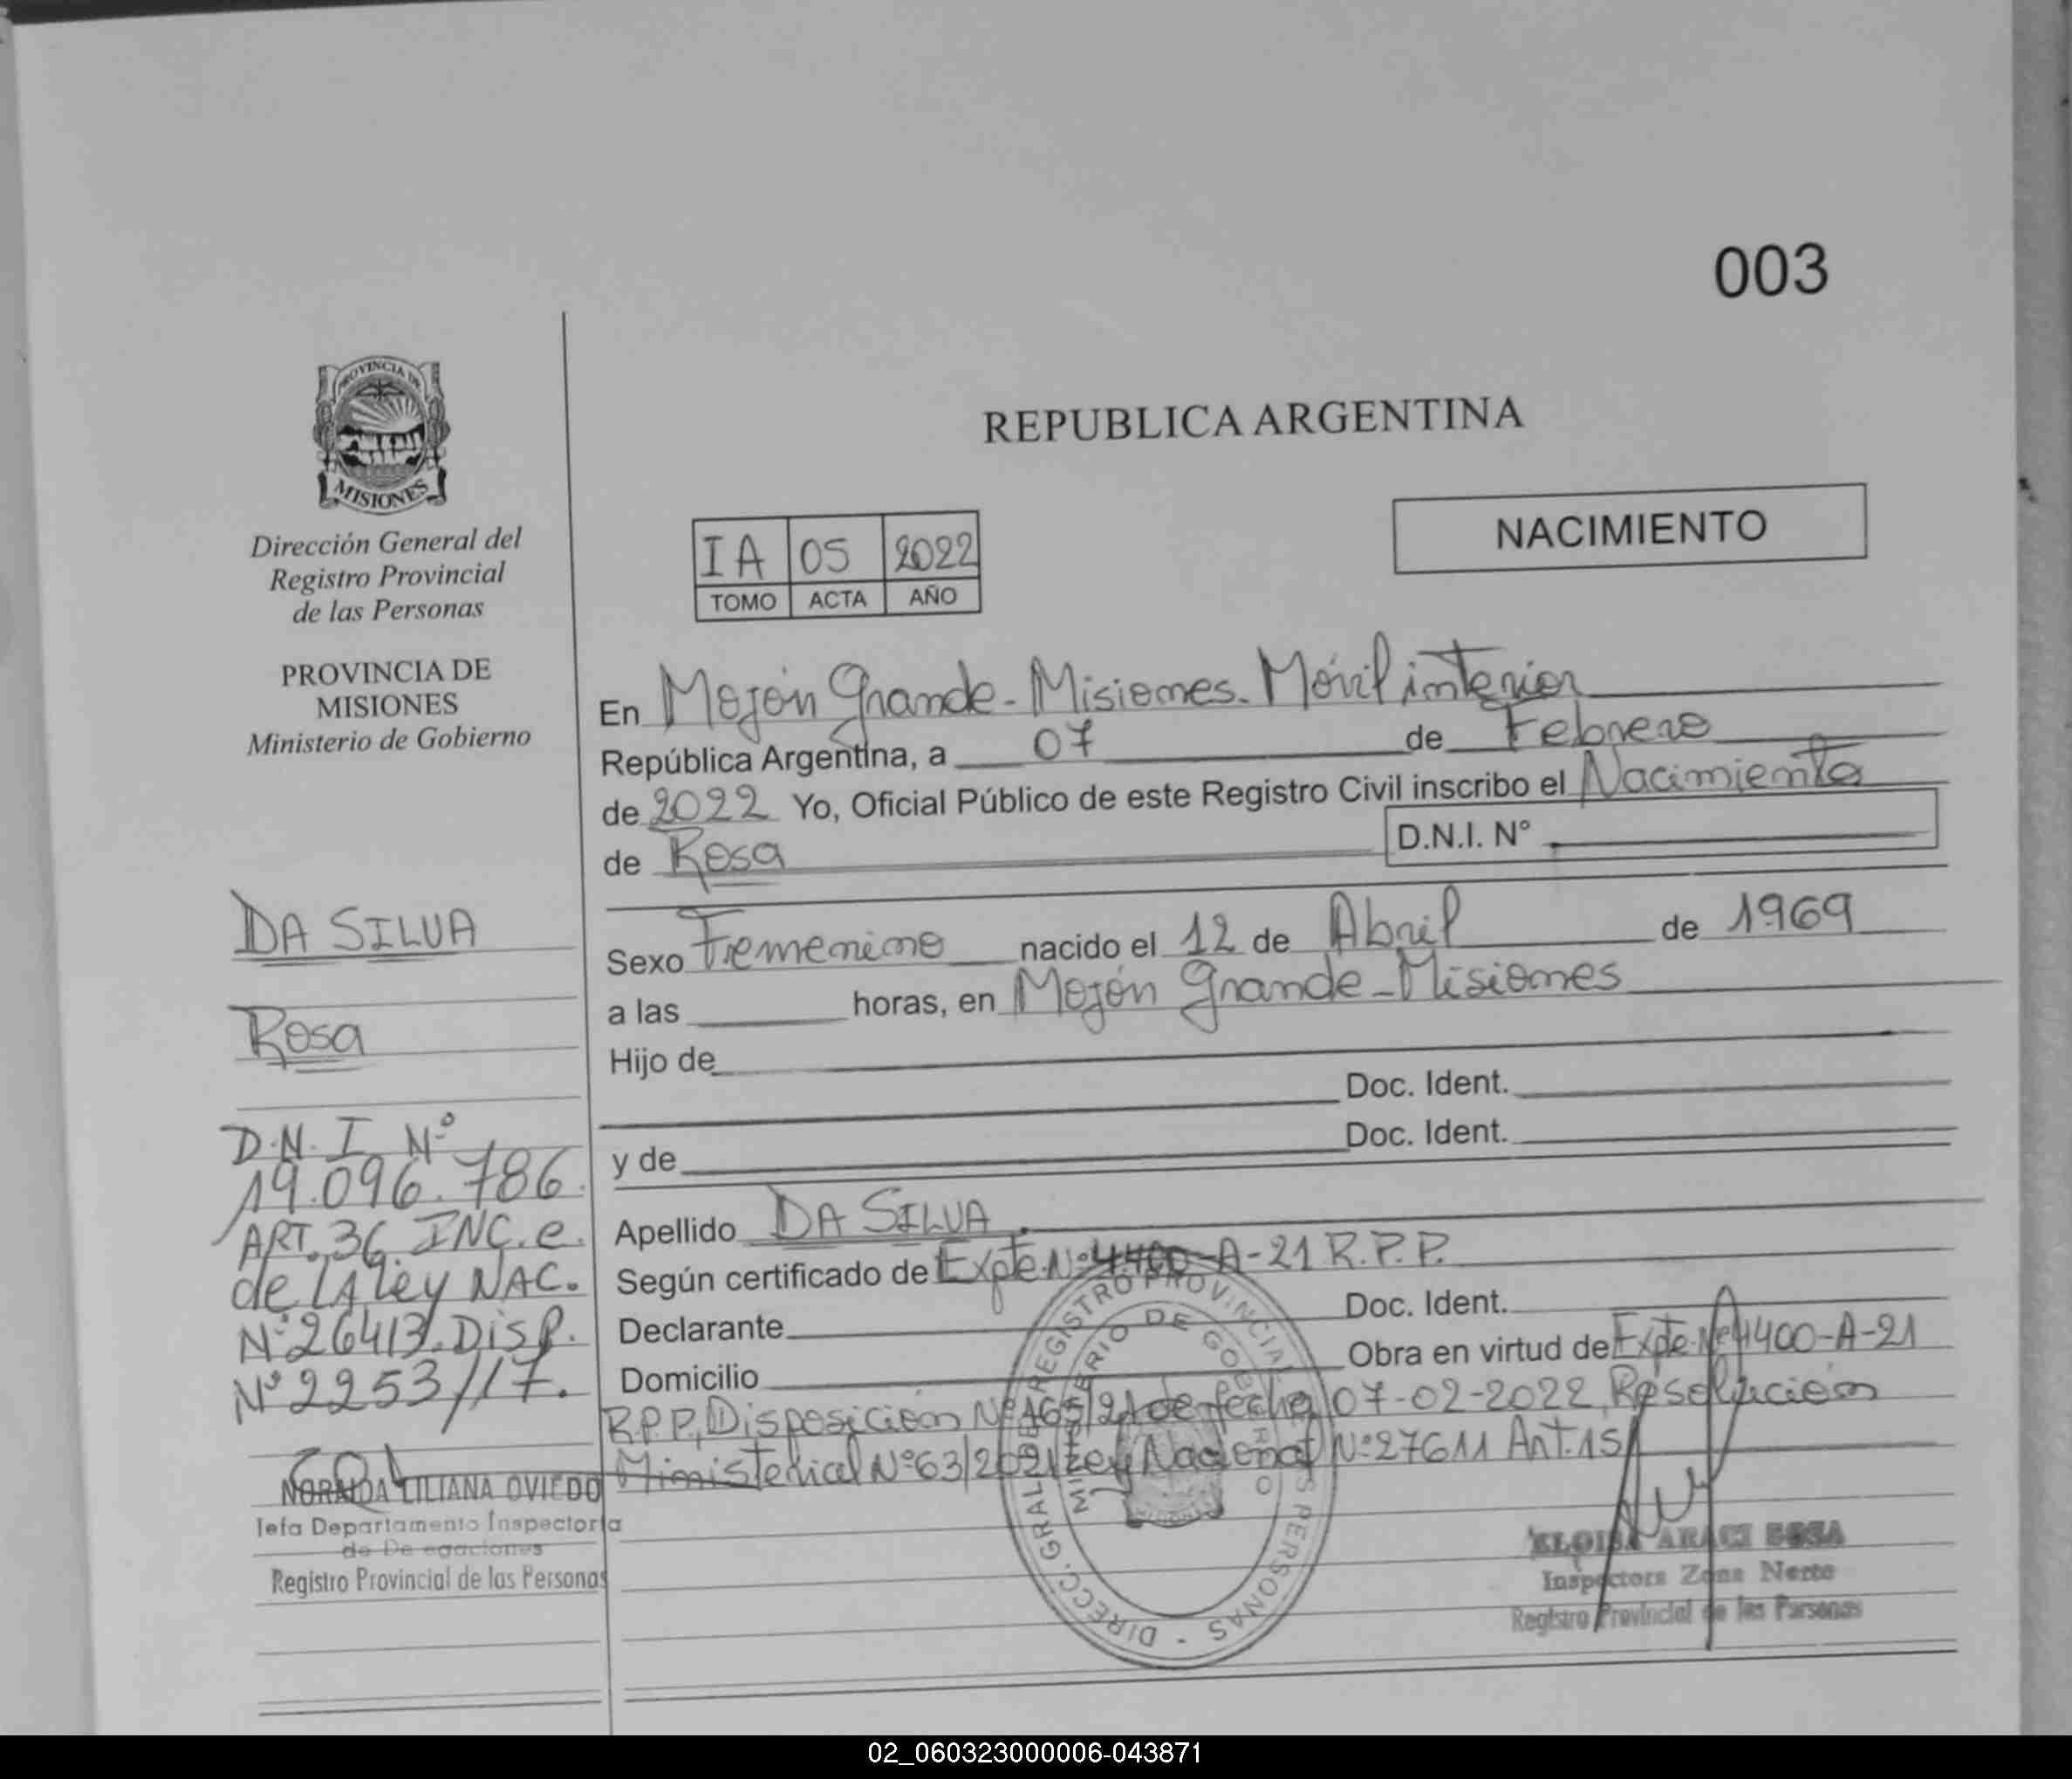 003
PROVINCIA DE
MISIONES
Dirección General del
Registro Provincial
de las Personas
PROVINCIA DE
MISIONES
Ministerio de Gobierno
DA SILVA
Rosa
D.N.I Nº
19.096.786.
ART. 36. INC. e.
de LA Ley NAC.
Nº 26413. Disp.
Nº 2253/17.
NORMDA LILIANA OVIEDO
Jefa Departamento Inspectoria
de Delegaciones
Registro Provincial de las Personas
REPUBLICA ARGENTINA
IA 05 2022
TOMO ACTA AÑO
NACIMIENTO
En Mojón Grande - Misiones. Móvil interior
República Argentina, a 07 de Febrero
de 2022 Yo, Oficial Público de este Registro Civil inscribo el Nacimiento
de Rosa D.N.I. Nº
Sexo Femenino nacido el 12 de Abril de 1969
a las horas, en Mojón Grande - Misiones
Hijo de
Doc. Ident.
y de Doc. Ident.
Apellido DA SILVA.
Según certificado de Expte. Nº 4400-A-21 R.P.P.
Declarante Doc. Ident.
Domicilio Obra en virtud de Expte. Nº 4400-A-21
R.P.P, Disposición Nº 165/21 de fecha 07-02-2022, Resolución
Ministerial Nº 63/2021 Ley Nacional Nº 27611 Art. 15
DIRECC. GRAL. DE REGISTRO PROVINCIAL DE LAS PERSONAS -
MINISTERIO DE GOBIERNO
ELOISA ARACI SOSA
Inspectora Zona Norte
Registro Provincial de las Personas
02_060323000006-043871